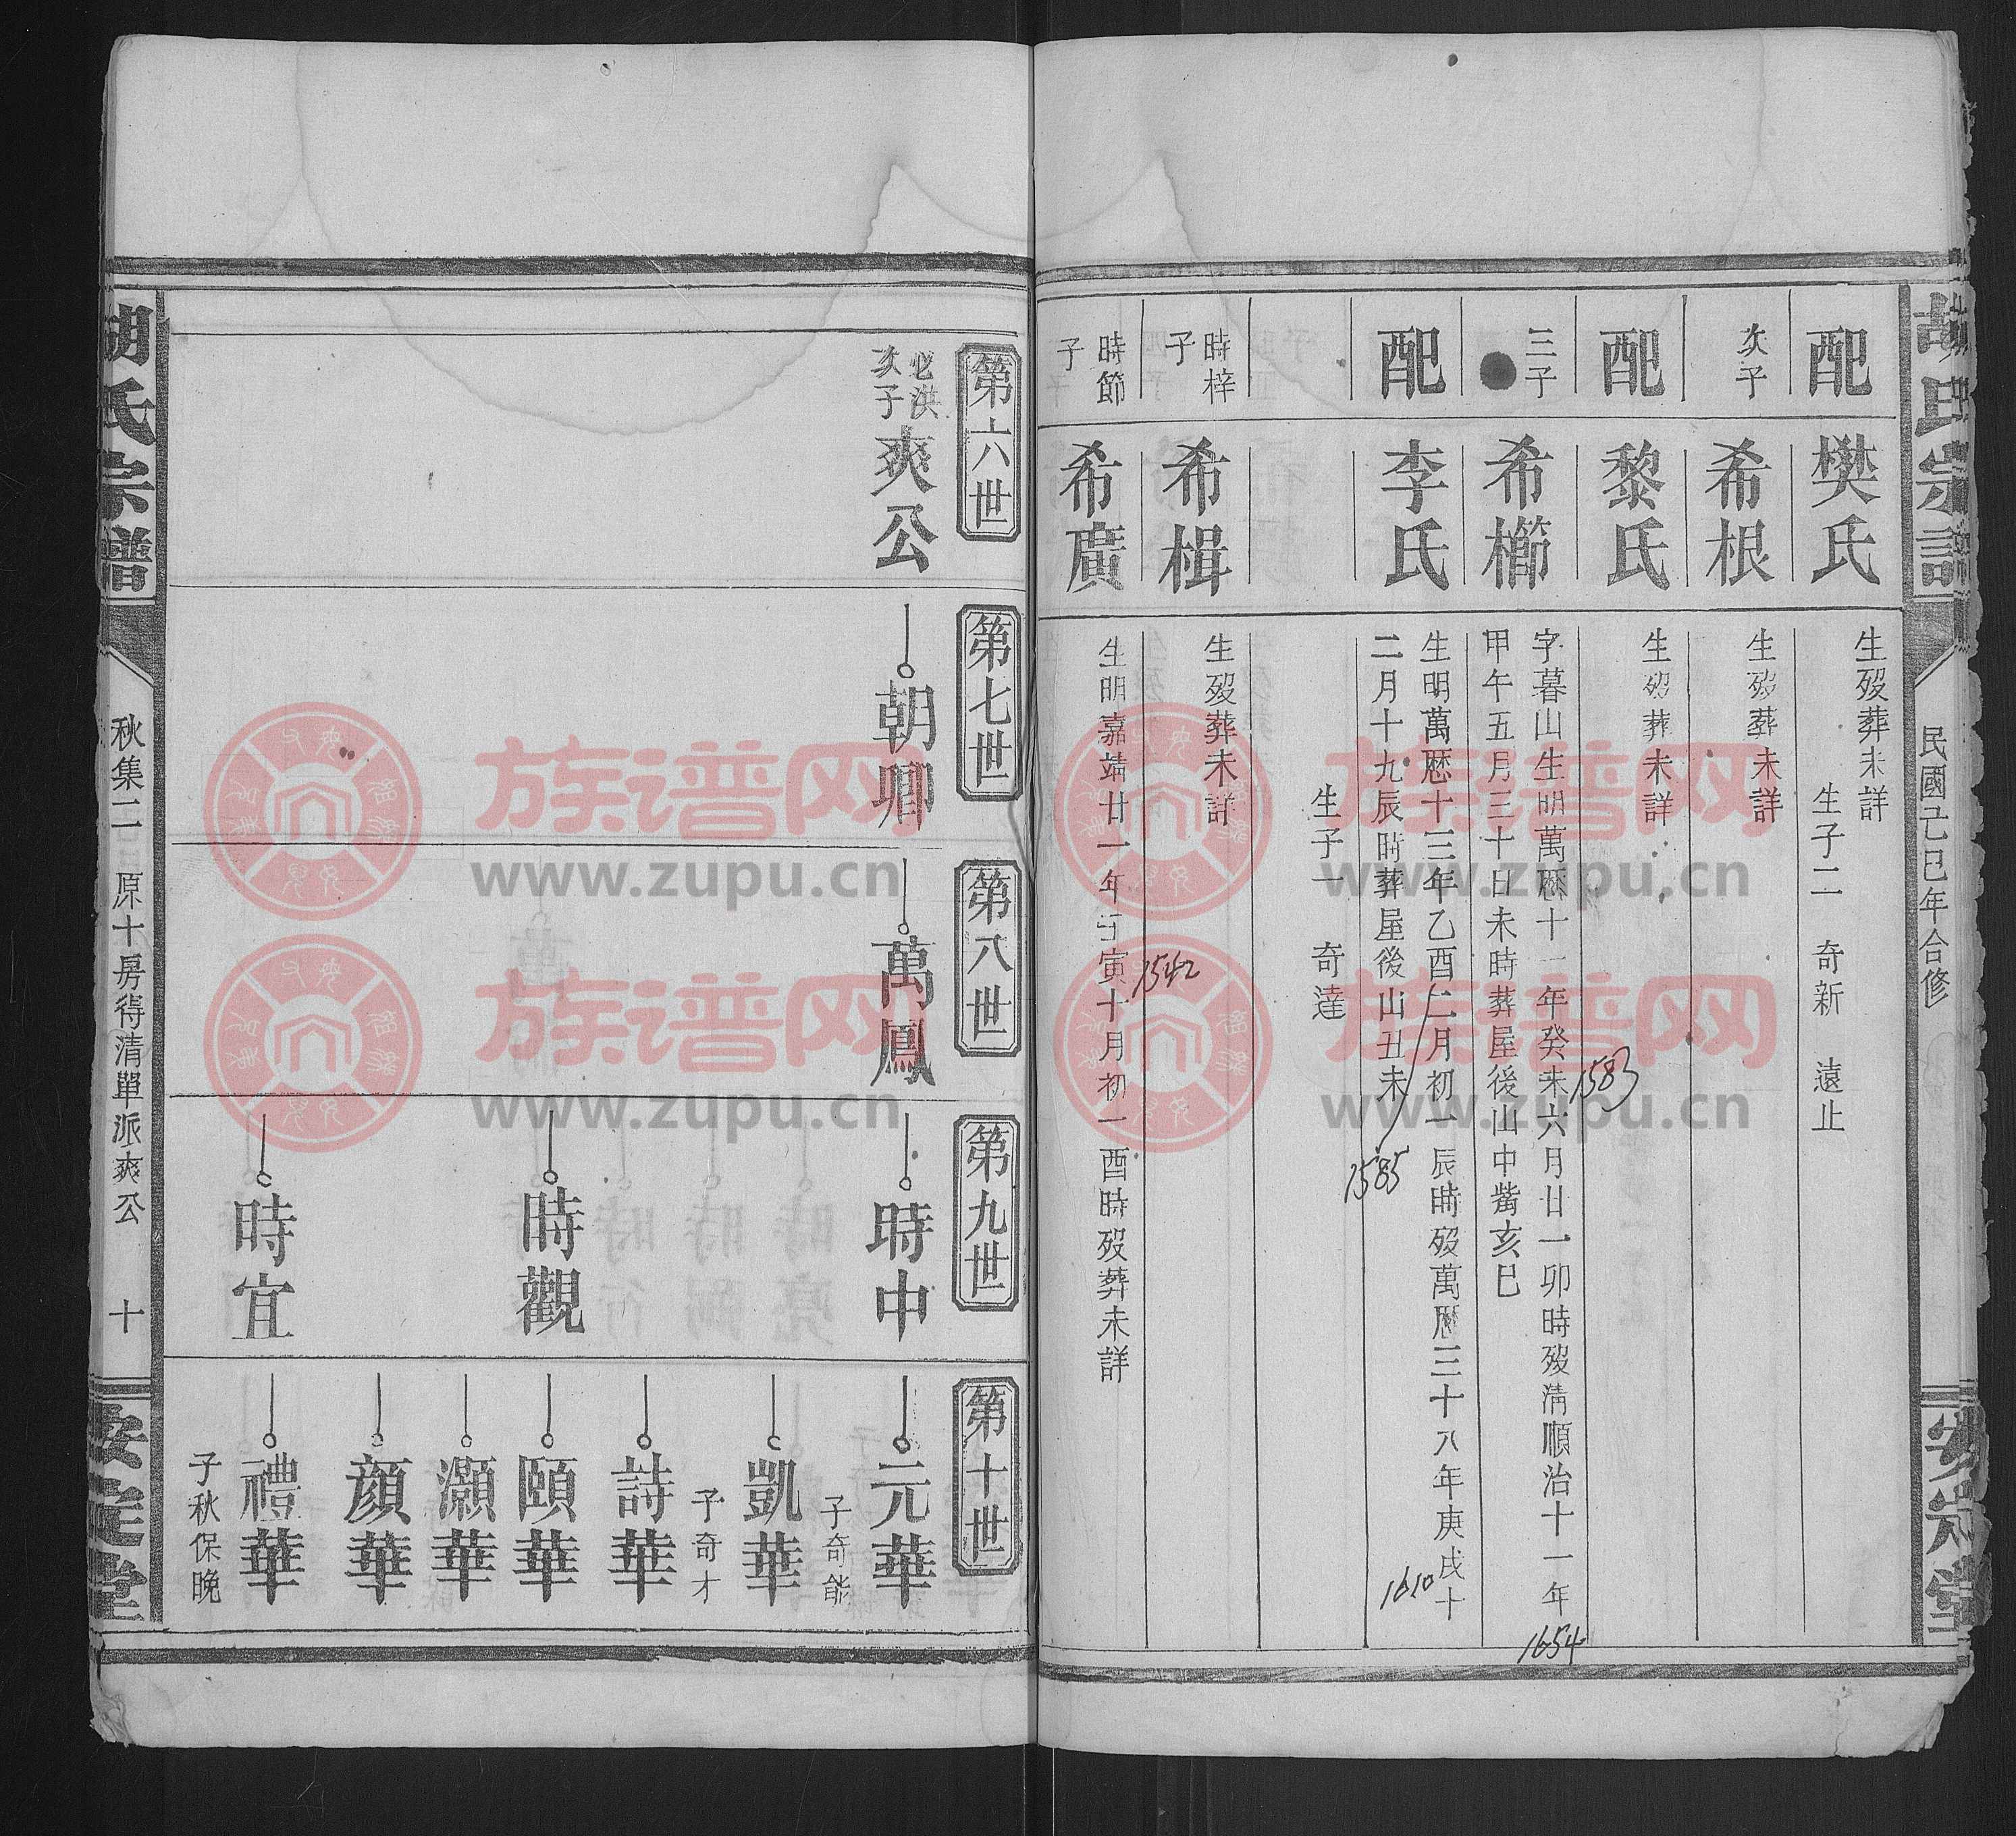 胡氏宗譜
民國己巳年合修
安定堂
配
樊氏
生歿葬未詳
生子二 奇新 遠止
次子
希根
生歿葬未詳
配
黎氏
生歿葬未詳
三子
希櫛
字暮山生明萬厯十一年癸未六月廿一卯時歿清順治十一年
甲午五月三十日未時葬屋後山中嘴亥巳
1583
1654
配
李氏
生明萬厯十三年乙酉二月初一辰時歿萬厯三十八年庚戌十
二月十九辰時葬屋後山丑未
1585
1610
生子一 奇達
時梓
子
希楫
生歿葬未詳
時節
子
希廣
生明嘉靖廿一年壬寅十月初一酉時歿葬未詳
1542
第六世
必洪
次子
爽公
第七世
朝卿
第八世
萬鳳
第九世
時中
時觀
時宜
第十世
元華
子奇能
凱華
子奇才
詩華
頤華
灝華
顔華
禮華
子秋保晚
胡氏宗譜
秋集二 原十房得清單派爽公
十
安定堂
族谱网
www.zupu.cn
族谱网
www.zupu.cn
族谱网
www.zupu.cn
族谱网
www.zupu.cn